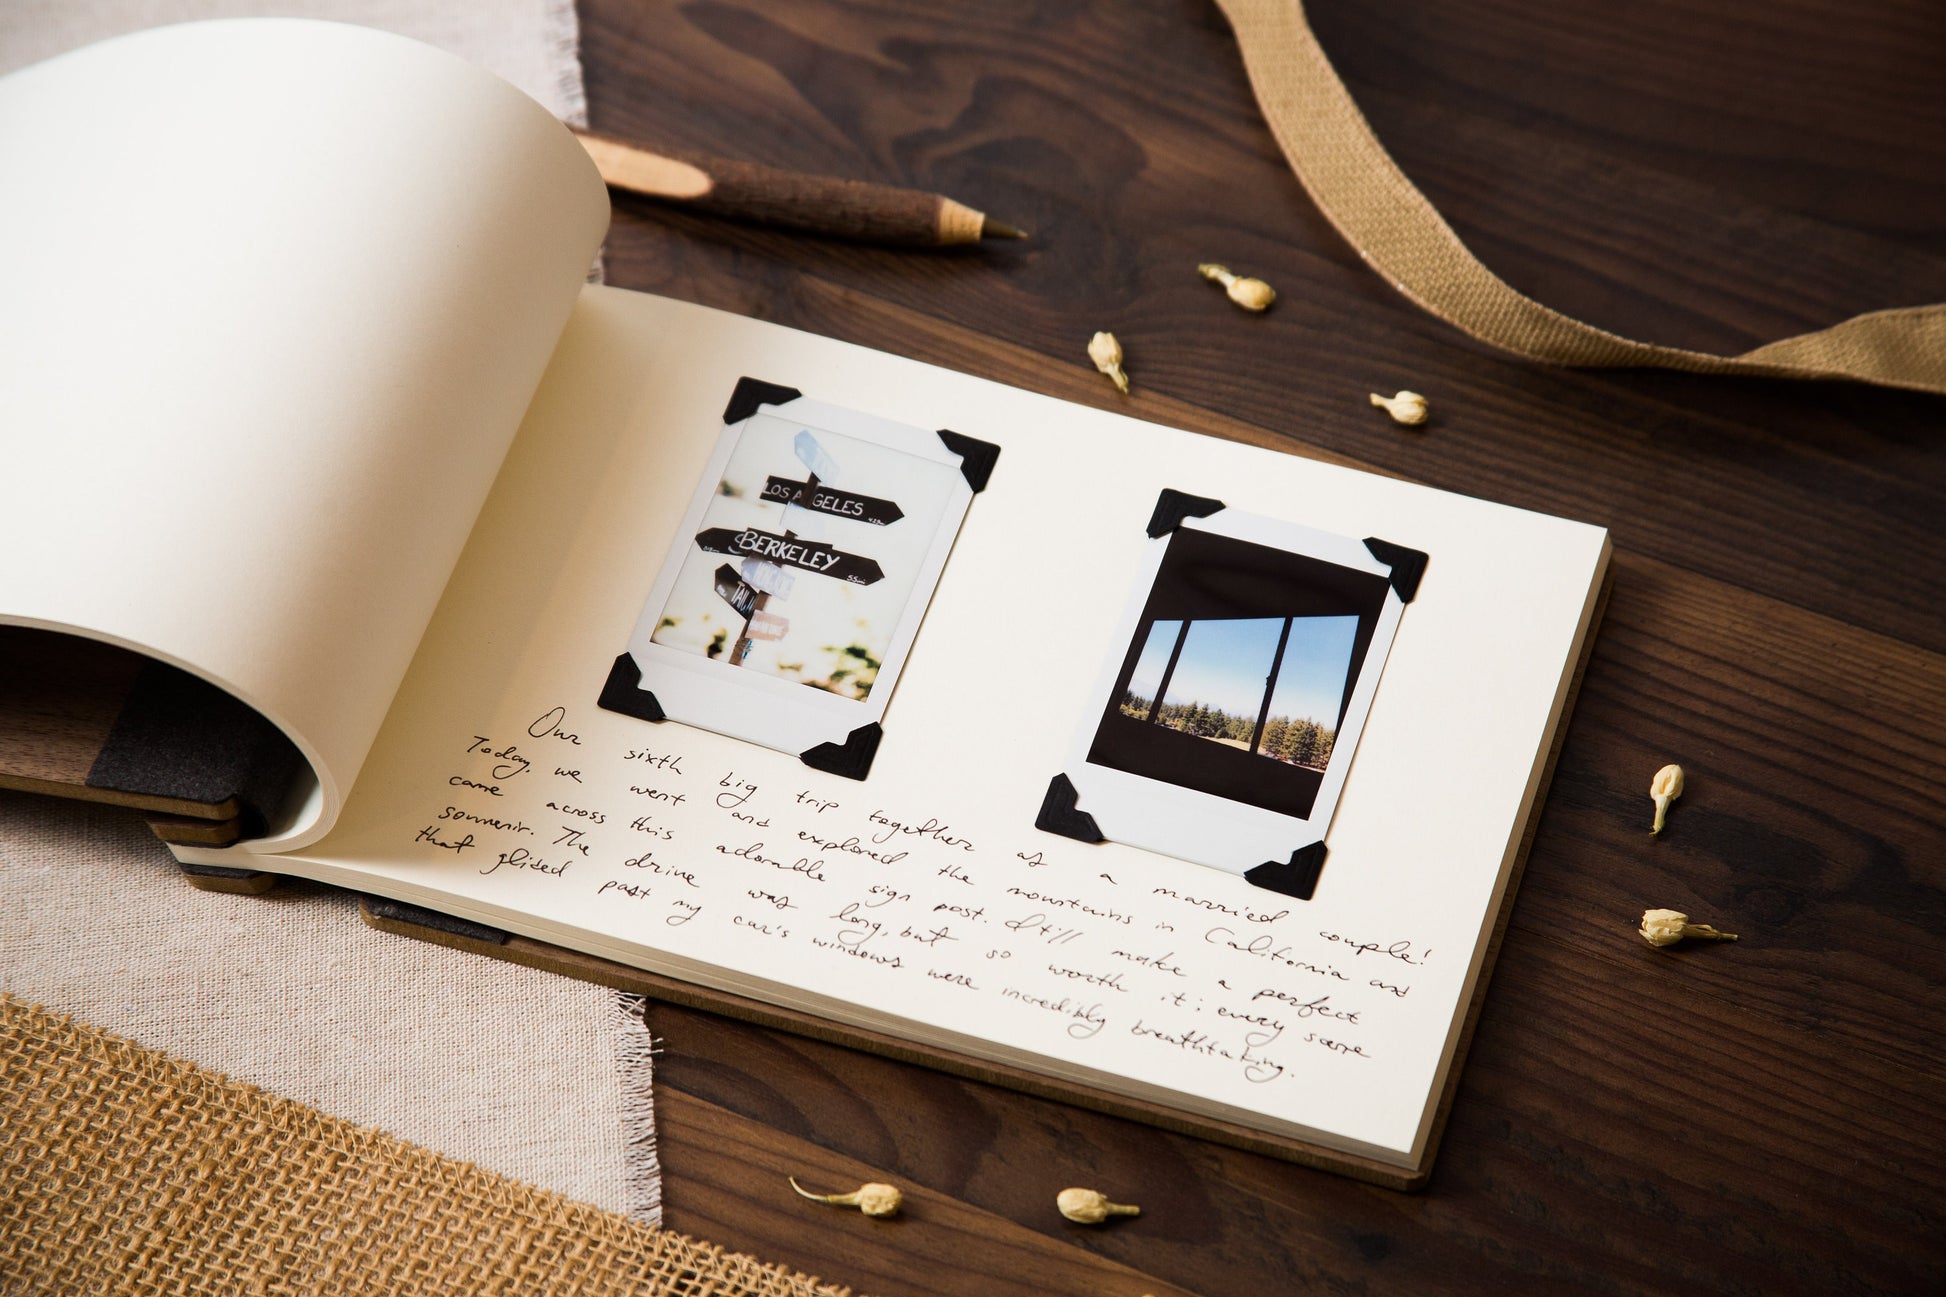 LOS ANGELES
BERKELEY
55mi
Our sixth big trip together as a married couple!
Today, we went and explored the mountains in California and
came across this adorable sign post. It'll make a perfect
souvenir. The drive was long, but so worth it; every scene
that glided past my car's windows were incredibly breathtaking.